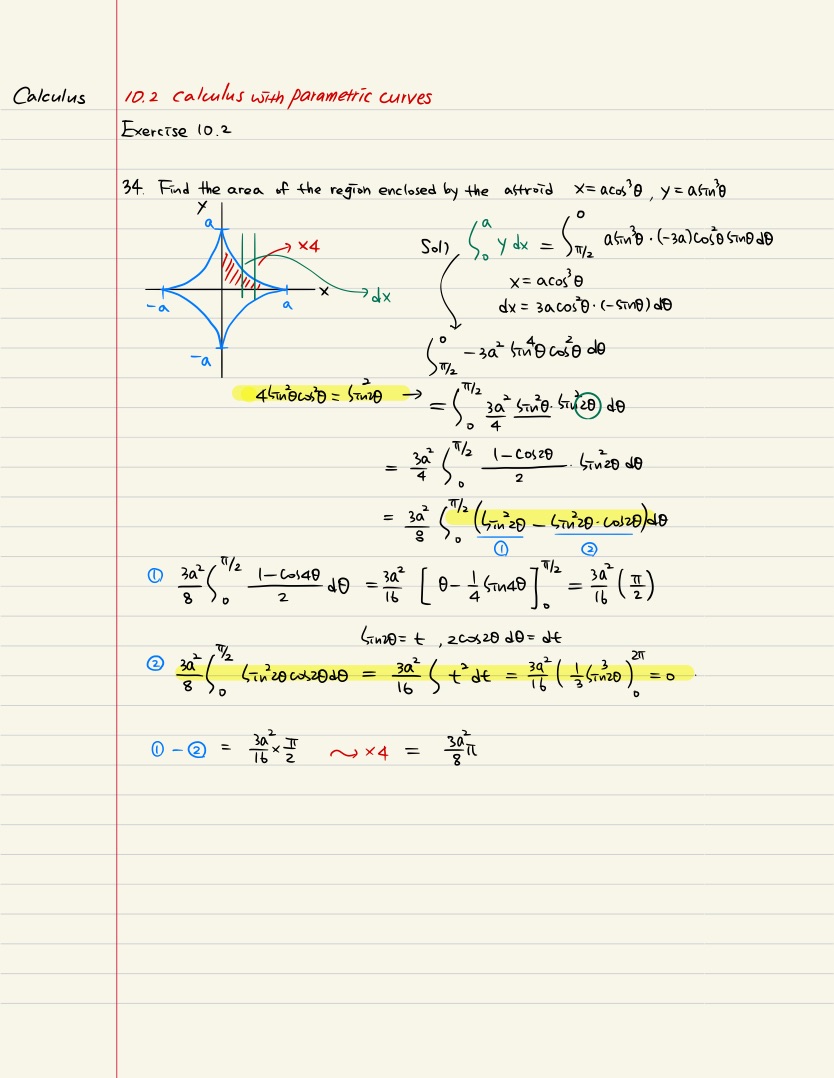 Calculus
10.2 Calculus with parametric curves
Exercise 10.2
34. Find the area of the region enclosed by the astroid x = acos³θ , y = asin³θ
y
a
×4
-a
a
x
dx
-a
Sol) ∫₀ᵃ y dx = ∫_{π/2}^{0} asin³θ · (-3a)cos²θ sinθ dθ
x = acos³θ
dx = 3acos²θ · (-sinθ) dθ
∫_{π/2}^{0} -3a² sin⁴θ cos²θ dθ
4sin²θcos²θ = sin²2θ → = ∫_{0}^{π/2} 3a²/4 sin²θ · sin²2θ dθ
= 3a²/4 ∫_{0}^{π/2} (1-cos2θ)/2 · sin²2θ dθ
= 3a²/8 ∫_{0}^{π/2} (sin²2θ - sin²2θ·cos2θ)dθ
① ②
① 3a²/8 ∫_{0}^{π/2} (1-cos4θ)/2 dθ = 3a²/16 [θ - 1/4 sin4θ]_{0}^{π/2} = 3a²/16 (π/2)
sin2θ = t , 2cos2θ dθ = dt
② 3a²/8 ∫_{0}^{π/2} sin²2θ cos2θdθ = 3a²/16 ∫ t² dt = 3a²/16 (1/3 sin³2θ)_{0}^{2π} = 0
① - ② = 3a²/16 × π/2 ⇝ ×4 = 3a²/8 π